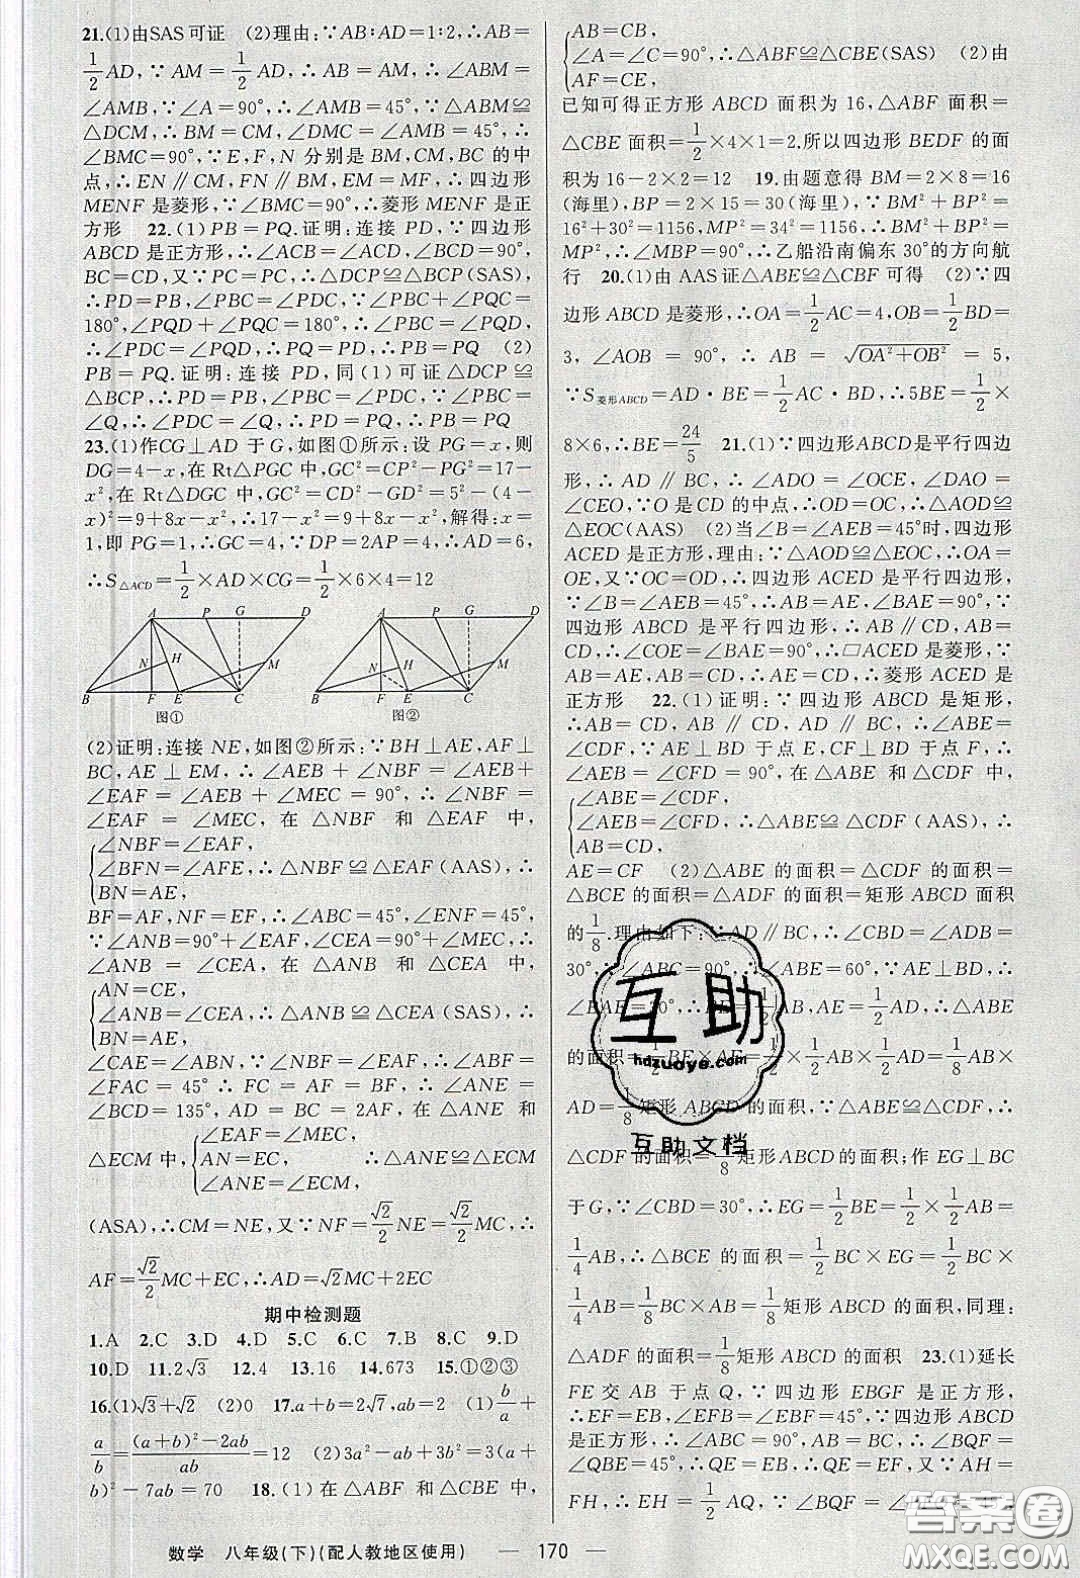 21.(1)由SAS可证 (2)理由:∵AB∶AD=1∶2,∴AB=
1/2AD,∵AM=1/2AD,∴AB=AM,∴∠ABM=
∠AMB,∵∠A=90°,∴∠AMB=45°,∵△ABM≌
△DCM,∴BM=CM,∠DMC=∠AMB=45°,∴
∠BMC=90°,∵E,F,N分别是BM,CM,BC的中
点,∴EN∥CM,FN∥BM,EM=MF,∴四边形
MENF是菱形,∵∠BMC=90°,∴菱形MENF是正
方形 22.(1)PB=PQ.证明:连接PD,∵四边形
ABCD是正方形,∴∠ACB=∠ACD,∠BCD=90°,
BC=CD,又∵PC=PC,∴△DCP≌△BCP(SAS),
∴PD=PB,∠PBC=∠PDC,∵∠PBC+∠PQC=
180°,∠PQD+∠PQC=180°,∴∠PBC=∠PQD,
∴∠PDC=∠PQD,∴PQ=PD,∴PB=PQ (2)
PB=PQ.证明:连接PD,同(1)可证△DCP≌
△BCP,∴PD=PB,∠PBC=∠PDC,∵∠PBC=
∠Q,∴∠PDC=∠Q,∴PD=PQ,∴PB=PQ
23.(1)作CG⊥AD于G,如图①所示:设PG=x,则
DG=4-x,在Rt△PGC中,GC²=CP²-PG²=17-
x²,在Rt△DGC中,GC²=CD²-GD²=5²-(4-
x)²=9+8x-x²,∴17-x²=9+8x-x²,解得:x=
1,即PG=1,∴GC=4,∵DP=2AP=4,∴AD=6,
∴S△ACD=1/2×AD×CG=1/2×6×4=12
A P G D A P G D
N H M N H M
B F E C B F E C
图① 图②
(2)证明:连接NE,如图②所示:∵BH⊥AE,AF⊥
BC,AE⊥EM,∴∠AEB+∠NBF=∠AEB+
∠EAF=∠AEB+∠MEC=90°,∴∠NBF=
∠EAF=∠MEC,在△NBF和△EAF中,
{∠NBF=∠EAF,
∠BFN=∠AFE,∴△NBF≌△EAF(AAS),∴
BN=AE,
BF=AF,NF=EF,∴∠ABC=45°,∠ENF=45°,
∵∠ANB=90°+∠EAF,∠CEA=90°+∠MEC,∴
∠ANB=∠CEA,在△ANB和△CEA中,
{AN=CE,
∠ANB=∠CEA,∴△ANB≌△CEA(SAS),∴
BN=AE,
∠CAE=∠ABN,∵∠NBF=∠EAF,∴∠ABF=
∠FAC=45°∴FC=AF=BF,∴∠ANE=
∠BCD=135°,AD=BC=2AF,在△ANE和
△ECM中,{∠EAF=∠MEC,
AN=EC, ∴△ANE≌△ECM
∠ANE=∠ECM,
(ASA),∴CM=NE,又∵NF=√2/2NE=√2/2MC,∴
AF=√2/2MC+EC,∴AD=√2MC+2EC
期中检测题
1.A 2.C 3.D 4.D 5.C 6.C 7.B 8.C 9.D
10.D 11.2√3 12.4 13.16 14.673 15.①②③
16.(1)√3+√2 (2)0 17.a+b=2√7,ab=2 (1)b/a+
a/b=((a+b)²-2ab)/ab=12 (2)3a²-ab+3b²=3(a+
b)²-7ab=70 18.(1)在△ABF和△CBE中,
{AB=CB,
∠A=∠C=90°,∴△ABF≌△CBE(SAS) (2)由
AF=CE,
已知可得正方形ABCD面积为16,△ABF面积=
△CBE面积=1/2×4×1=2,所以四边形BEDF的面
积为16-2×2=12 19.由题意得BM=2×8=16
(海里),BP=2×15=30(海里),∵BM²+BP²=
16²+30²=1156,MP²=34²=1156,∴BM²+BP²=
MP²,∴∠MBP=90°,∴乙船沿南偏东30°的方向航
行 20.(1)由AAS证△ABE≌△CBF可得 (2)∵四
边形ABCD是菱形,∴OA=1/2AC=4,OB=1/2BD=
3,∠AOB=90°,∴AB=√(OA²+OB²)=5,
∵S菱形ABCD=AD·BE=1/2AC·BD,∴5BE=1/2×
8×6,∴BE=24/5 21.(1)∵四边形ABCD是平行四边
形,∴AD∥BC,∴∠ADO=∠OCE,∠DAO=
∠CEO,∵O是CD的中点,∴OD=OC,∴△AOD≌
△EOC(AAS) (2)当∠B=∠AEB=45°时,四边形
ACED是正方形,理由:∵△AOD≌△EOC,∴OA=
OE,又∵OC=OD,∴四边形ACED是平行四边形,
∵∠B=∠AEB=45°,∴AB=AE,∠BAE=90°,∵
四边形ABCD是平行四边形,∴AB∥CD,AB=
CD,∴∠COE=∠BAE=90°,∴▱ACED是菱形,∵
AB=AE,AB=CD,∴AE=CD,∴菱形ACED是
正方形 22.(1)证明:∵四边形ABCD是矩形,
∴AB=CD,AB∥CD,AD∥BC,∴∠ABE=
∠CDF,∵AE⊥BD于点E,CF⊥BD于点F,∴
∠AEB=∠CFD=90°,在△ABE和△CDF中,
{∠ABE=∠CDF,
∠AEB=∠CFD,∴△ABE≌△CDF(AAS),∴
AB=CD,
AE=CF (2)△ABE的面积=△CDF的面积=
△BCE的面积=△ADF的面积=矩形ABCD面积
的1/8.理由如下:∵AD∥BC,∴∠CBD=∠ADB=
30°,∵∠ABC=90°,∴∠ABE=60°,∵AE⊥BD,∴
∠BAE=30°,∴BE=1/2AB,AE=1/2AD,∴△ABE
的面积=1/2BE×AE=1/2×1/2AB×1/2AD=1/8AB×
AD=1/8矩形ABCD的面积,∵△ABE≌△CDF,∴
△CDF的面积=1/8矩形ABCD的面积;作EG⊥BC
于G,∵∠CBD=30°,∴EG=1/2BE=1/2×1/2AB=
1/4AB,∴△BCE的面积=1/2BC×EG=1/2BC×
1/4AB=1/8BC×AB=1/8矩形ABCD的面积,同理:
△ADF的面积=1/8矩形ABCD的面积 23.(1)延长
FE交AB于点Q,∵四边形EBGF是正方形,
∴EF=EB,∠EFB=∠EBF=45°,∵四边形ABCD
是正方形,∴∠ABC=90°,AB=BC,∴∠BQF=
∠QBE=45°,∴QE=EB,∴QE=EF,又∵AH=
FH,∴EH=1/2AQ,∵∠BQF=∠
互助
hdzuoye.com
互助文档
答案圈
数学 八年级(下)(配人教地区使用) — 170 —